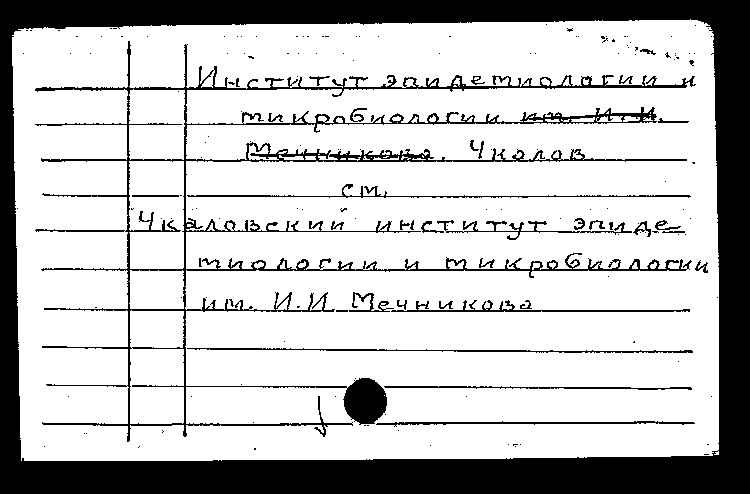 Институт эпидемиологии и
микробиологии им. И.И.
Мечникова. Чкалов
см.
Чкаловский институт эпиде-
миологии и микробиологии
им. И.И. Мечникова